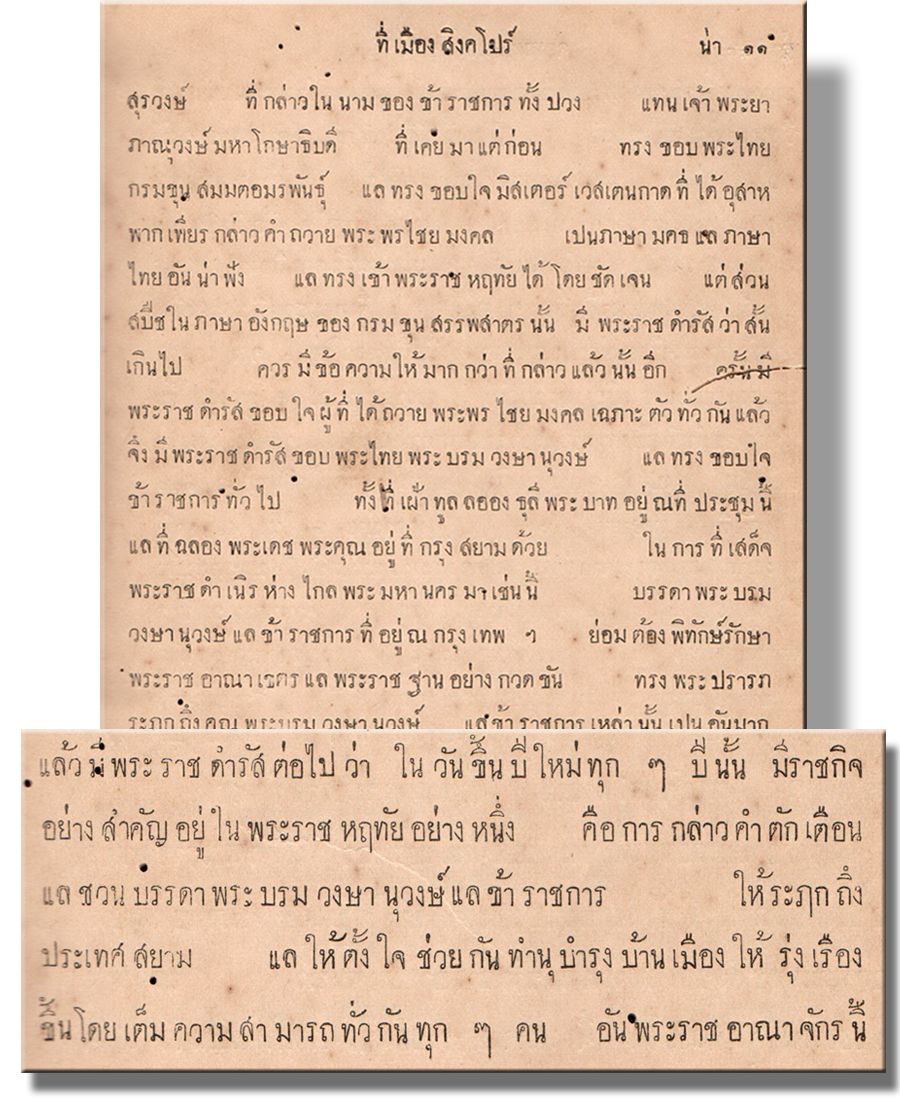 ที่ เมือง สิงคโปร์ น่า ๑๑
สุรวงษ์ ที่ กล่าว ใน นาม ของ ข้า ราชการ ทั้ง ปวง แทน เจ้า พระยา
ภาณุวงษ์ มหาโกษาธิบดี ที่ เคย มา แต่ ก่อน ทรง ขอบ พระไทย
กรมขุน สมมตอมรพันธุ์ แล ทรง ขอบใจ มิสเตอร์ เวสเตนกาด ที่ ได้ อุสาห
พากเพียร กล่าว คำ ถวาย พระ พรไชย มงคล เปนภาษา มคธ แล ภาษา
ไทย อัน น่า ฟัง แล ทรง เข้า พระราช หฤทัย ได้ โดย ชัด เจน แต่ ส่วน
สปีช ใน ภาษา อังกฤษ ของ กรม ขุน สรรพสาตร นั้น มี พระราช ดำรัส ว่า สั้น
เกินไป ควร มี ข้อ ความ ให้ มาก กว่า ที่ กล่าว แล้ว นั้น อีก ครั้น มี
พระราช ดำรัส ขอบ ใจ ผู้ ที่ ได้ ถวาย พระพร ไชย มงคล เฉภาะ ตัว ทั่ว กัน แล้ว
จึ่ง มี พระราช ดำรัส ขอบ พระไทย พระ บรม วงษา นุวงษ์ แล ทรง ขอบใจ
ข้า ราชการ ทั่ว ไป ทั้ง ที่ เฝ้า ทูล ลออง ธุลี พระ บาท อยู่ ณที่ ประชุม นี้
แล ที่ ฉลอง พระเดช พระคุณ อยู่ ที่ กรุง สยาม ด้วย ใน การ ที่ เสด็จ
พระราช ดำ เนิร ห่าง ไกล พระ มหา นคร มา เช่น นี้ บรรดา พระ บรม
วงษา นุวงษ์ แล ข้า ราชการ ที่ อยู่ ณ กรุง เทพ ฯ ย่อม ต้อง พิทักษ์รักษา
พระราช อาณา เขตร แล พระราช ฐาน อย่าง กวด ขัน ทรง พระ ปรารภ
ระฦก ถึง คุณ พระบรม วงษา นุวงษ์ แล ข้า ราชการ เหล่า นั้น เปน อันมาก
แล้ว มี พระ ราช ดำรัส ต่อไป ว่า ใน วัน ขึ้น ปี ใหม่ ทุก ๆ ปี นั้น มีราชกิจ
อย่าง สำคัญ อยู่ ใน พระราช หฤทัย อย่าง หนึ่ง คือ การ กล่าว คำ ตัก เตือน
แล ชวน บรรดา พระ บรม วงษา นุวงษ์ แล ข้า ราชการ ให้ ระฦก ถึง
ประเทศ สยาม แล ให้ ตั้ง ใจ ช่วย กัน ทำนุ บำรุง บ้าน เมือง ให้ รุ่ง เรือง
ขึ้น โดย เต็ม ความ สา มารถ ทั่ว กัน ทุก ๆ คน อัน พระราช อาณา จักร นี้